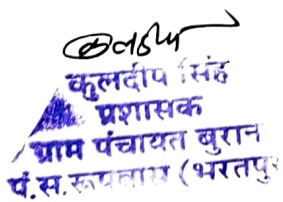 कुलदीप
कुलदीप सिंह
प्रशासक
ग्राम पंचायत बुरान
पं.स.रूपवास (भरतपुर